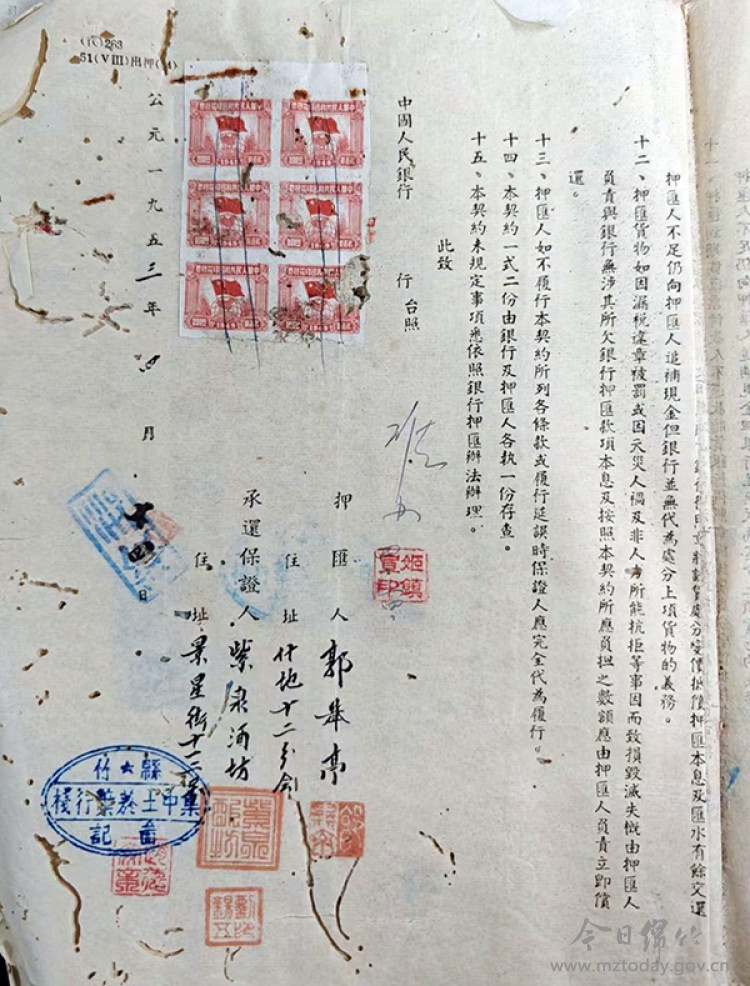 押匯人不足仍向押匯人追補現金但銀行並無代為處分上項貨物的義務。
十二、押匯貨物如因漏稅違章被罰或因天災人禍及非人力所能抗拒等事因而致損毀滅失概由押匯人
負責與銀行無涉其所欠銀行押匯款項本息及按照本契約所應負担之數額應由押匯人負責立即償
還。
十三、押匯人如不履行本契約所列各條款或履行延誤時保證人應完全代為履行。
十四、本契約一式二份由銀行及押匯人各執一份存查。
十五、本契約未規定事項悉依照銀行押匯辦法辦理。
此致
中國人民銀行 行 台照
押匯人 郭 亭
住址 什地十二
承還保證人 紫泉酒坊
住址 景星街十二
公元一九五三年 四月 十四日
263
51(VIII)出押
姬鎮
印
綿竹
集中土藥行棧
圖記
今日綿竹
www.mztoday.gov.cn